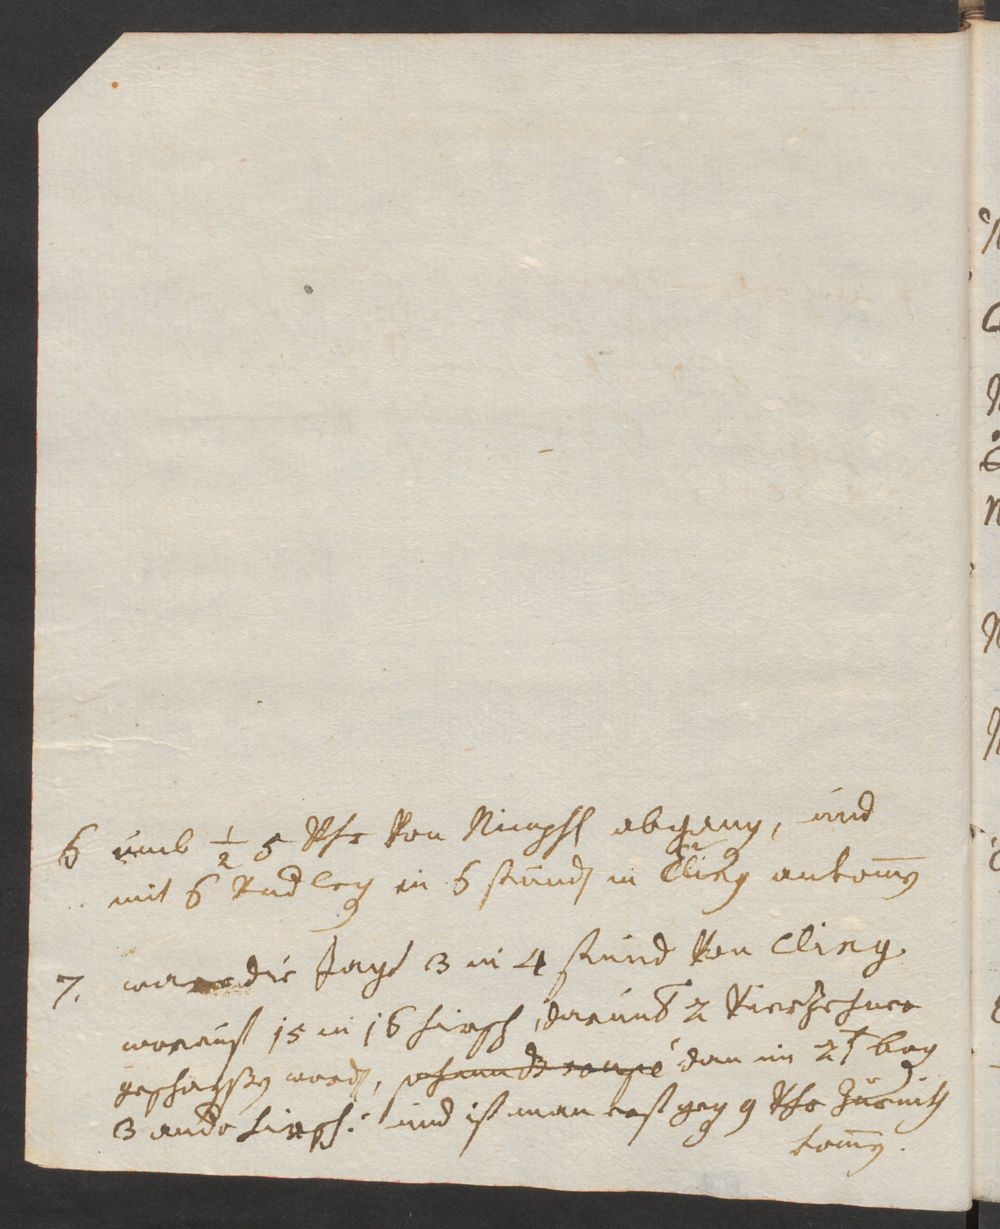 6 umb ½ 5 Uhr von Nimph abgang, und
mit 6 und in 6 stund in Cling ankom̄
7. war die Jagt 3 in 4 stund von Cling.
worauf 15 in 16 hirsch, darunt 2 Vierzehner
geschossen word, dan im 2t bog
3 ande hirsch: und ist man erst geg 9 Uhr Zuruckh
kom̄.